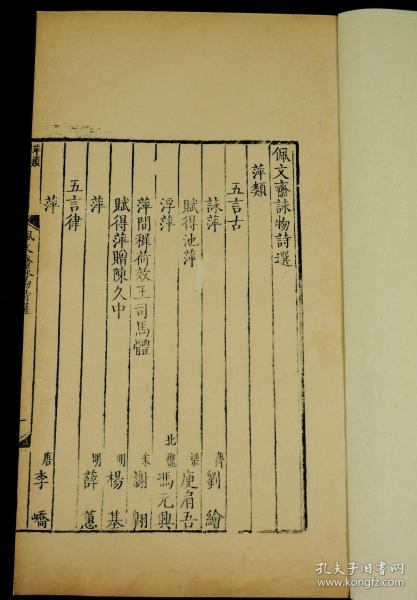 佩文齋詠物詩選
萍類
五言古
詠萍 齊 劉繪
賦得池萍 梁 庾肩吾
浮萍 北魏 馮元興
萍間穉荷效王司馬體 宋 謝翱
賦得萍贈陳久中 明 楊基
萍 明 薛蕙
五言律
萍 唐 李嶠
萍類
佩文齋詠物詩選
一
孔夫子旧书网